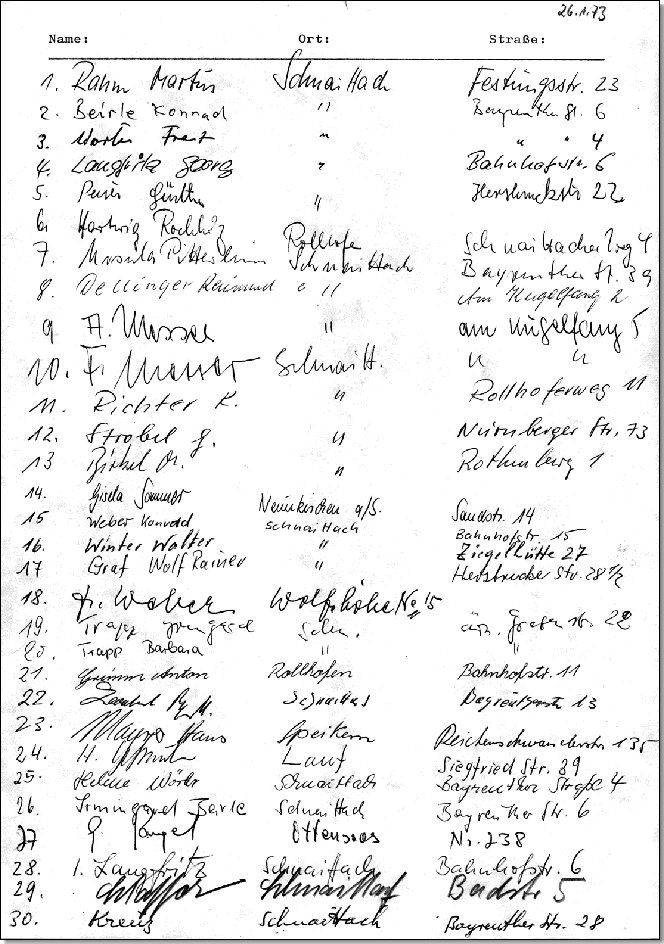 26.1.73
Name: Ort: Straße:
1. Rahm Martin Schnaittach Festungsstr. 23
2. Beirle Konrad " Bayreuther St. 6
3. " " " 4
4. Langfritz Georg " Bahnhofstr. 6
5. Günther " Hersbruckstr 22
6. Hartwig Rollhofen Schnaittacher Weg 4
7. Ursula Schnaittach Bayreuther St. 39
8. Dellinger Raimund " " Am Kugelfang 2
9 A. " am Kugelfang 5
10. F. Schnaitt. " "
11. Richter K. " Rollhoferweg 11
12. Strobel G. " Nürnberger Str. 73
13 " Rothenberg 1
14. Gisela Sommer Neunkirchen a/S. Sandstr. 14
15 Weber Konrad Schnaittach Bahnhofstr. 15
16. Winter Walter " Ziegelhütte 27
17 Graf Wolf Rainer " Hersbrucker Str. 28 1/2
18. Weber Wolfshöhe No 15
19. Trapp Schn. 22
20. Trapp Barbara " "
21. Grimm Anton Rollhofen Bahnhofstr. 11
22. Schnaittach Bayreutherstr 13
23. Hans Speikern 135
24. H. Lauf Siegfried Str. 39
25. Helene Schnaittach Bayreuther Straße 4
26. Irmingard Beirle Schnaittach Bayreuther Str. 6
27 G. Ottensoos Nr. 238
28. I. Langfritz Schnaittach Bahnhofstr. 6
29. Schnaittach Badstr 5
30. Kreuz Schnaittach Bayreuther Str. 28